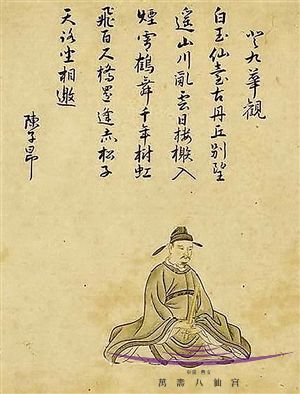 登九華觀
白玉仙臺古丹丘別望
遙山川亂雲日樓榭入
煙霄鶴舞千年樹虹
飛百尺橋還逢赤松子
天路坐相邀
陳子昂
中國·西安
萬壽八仙宮